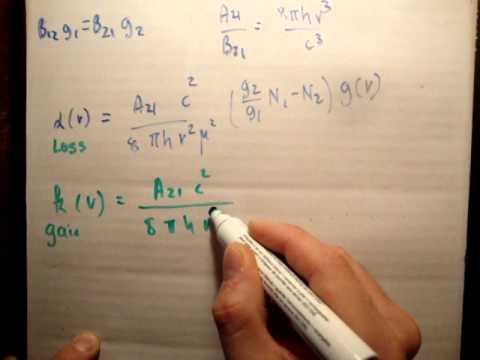 B₁₂ g₁ = B₂₁ g₂
A₂₁ / B₂₁ = 8πhν³ / c³
α(ν) = A₂₁ c² / 8πhν²μ² (g₂/g₁ N₁ − N₂) g(ν)
Loss
k(ν) = A₂₁ c² / 8πh
gain